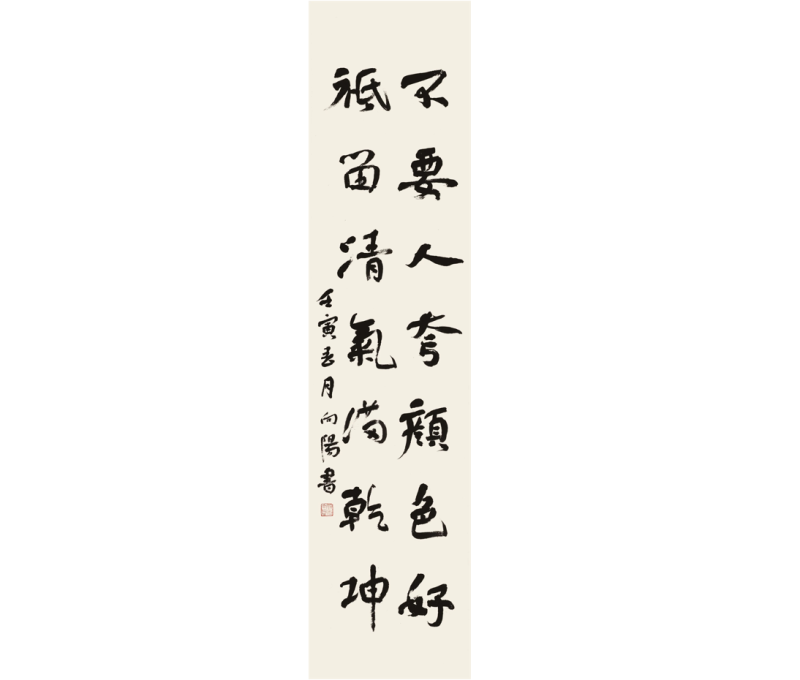 不要人夸顔色好
祗留清氣滿乾坤
壬寅春月向陽書